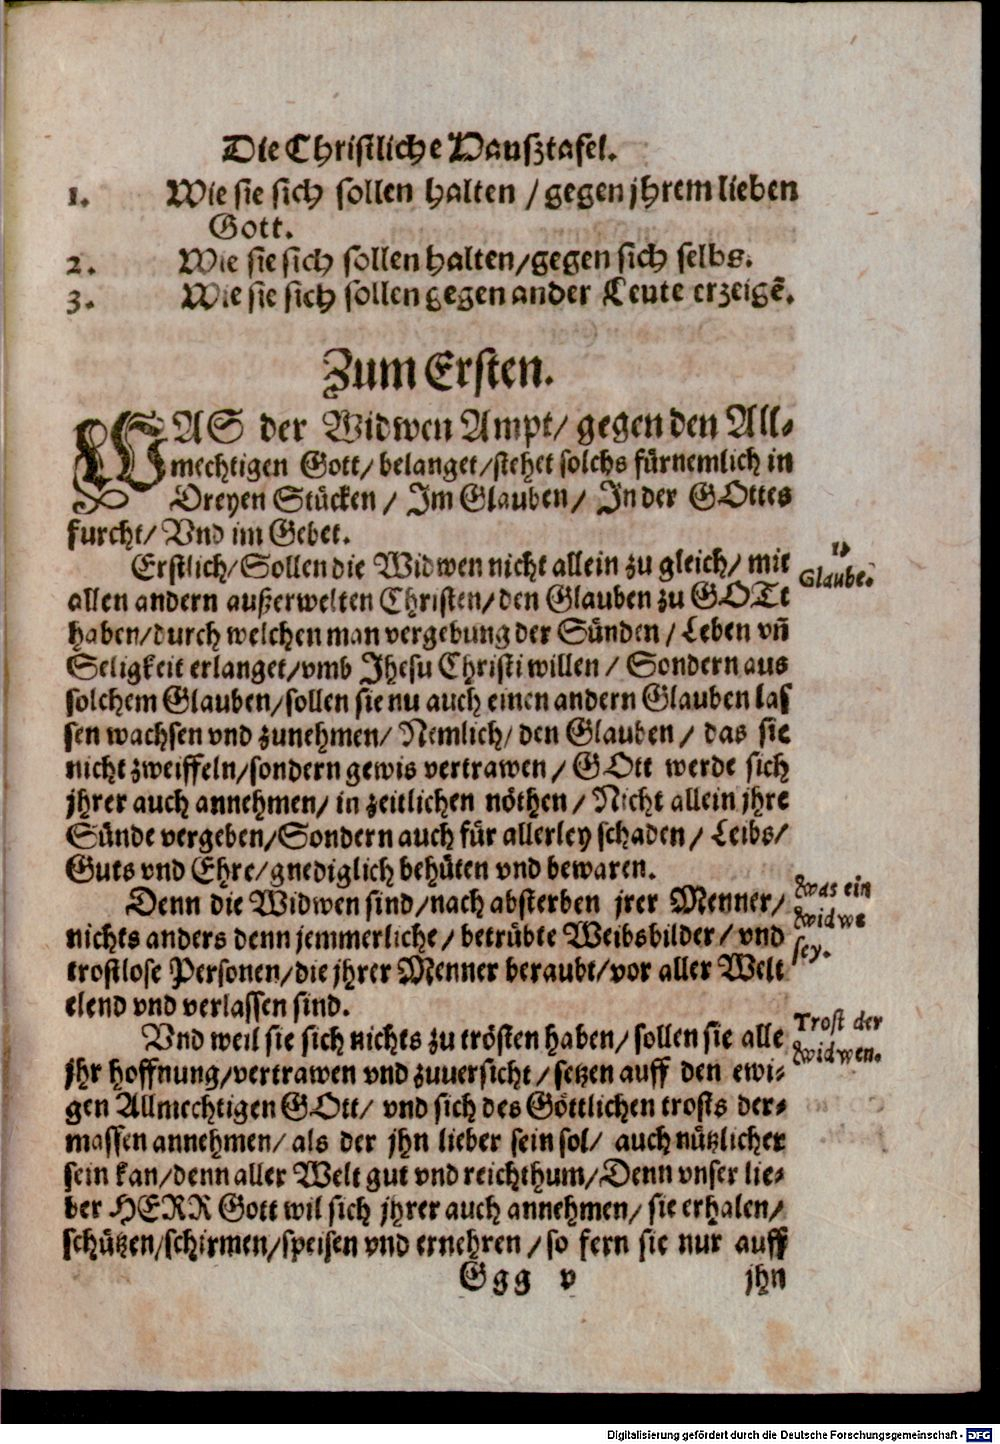 Die Christliche Haußtafel.
1. Wie sie sich sollen halten / gegen jhrem lieben
Gott.
2. Wie sie sich sollen halten/gegen sich selbs.
3. Wie sie sich sollen gegen ander Leute erzeigẽ.
Zum Ersten.
WAS der Widwen Ampt/ gegen den All-
mechtigen Gott/ belanget/stehet solchs fürnemlich in
Dreyen Stücken / Im Glauben / In der GOttes
furcht/ Vnd im Gebet.
Erstlich/Sollen die Widwen nicht allein zu gleich/ mit
allen andern außerwelten Christen/den Glauben zu GOTt
haben/durch welchen man vergebung der Sünden / Leben vñ
Seligkeit erlanget/vmb Jhesu Christi willen / Sondern aus
solchem Glauben/sollen sie nu auch einen andern Glauben las
sen wachsen vnd zunehmen/ Nemlich/ den Glauben / das sie
nicht zweiffeln/sondern gewis vertrawen / GOtt werde sich
jhrer auch annehmen/ in zeitlichen nöthen / Nicht allein jhre
Sünde vergeben/Sondern auch für allerley schaden / Leibs/
Guts vnd Ehre/gnediglich behüten vnd bewaren.
1,
Glaube.
Denn die Widwen sind/nach absterben jrer Menner/
nichts anders denn jemmerliche / betrübte Weibsbilder / vnd
trostlose Personen/die jhrer Menner beraubt/vor aller Welt
elend vnd verlassen sind.
Was ein
Widwe
sey.
Vnd weil sie sich nichts zu trösten haben/ sollen sie alle
jhr hoffnung/vertrawen vnd zuuersicht / setzen auff den ewi-
gen Allmechtigen GOtt/ vnd sich des Göttlichen trosts der-
massen annehmen/ als der jhn lieber sein sol/ auch nützlicher
sein kan/denn aller Welt gut vnd reichthum/Denn vnser lie-
ber HERR Gott wil sich jhrer auch annehmen/ sie erhalen/
schützen/schirmen/speisen vnd ernehren / so fern sie nur auff
Trost der
Widwen.
Ggg v
jhn
Digitalisierung gefördert durch die Deutsche Forschungsgemeinschaft - DFG